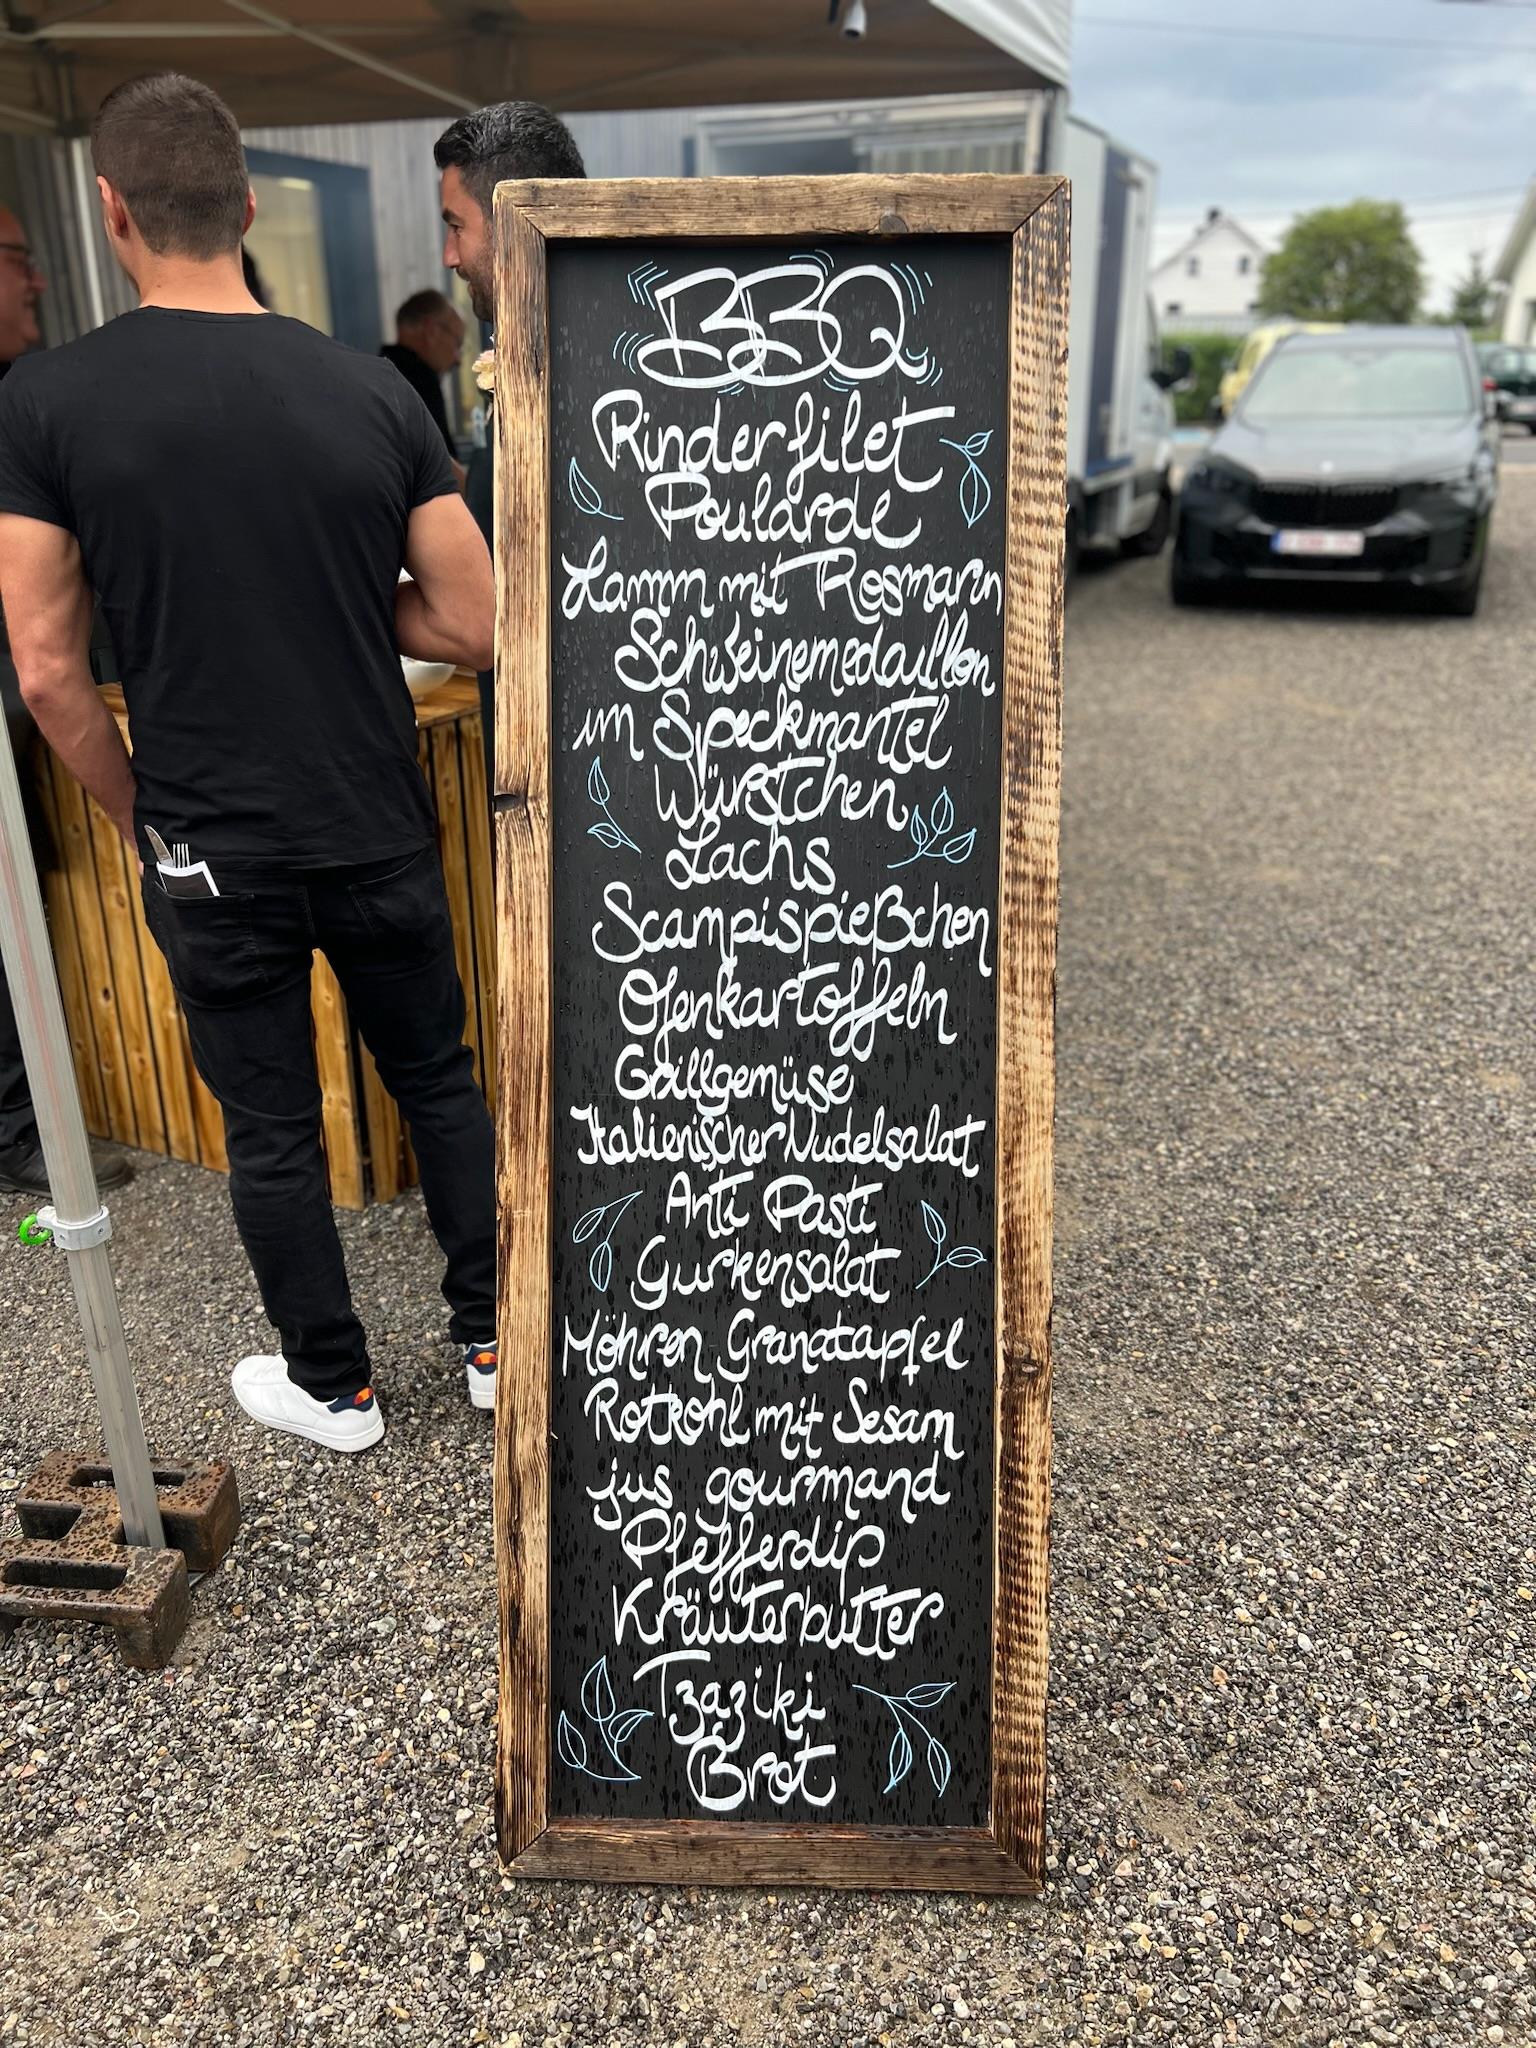 BBQ
Rinderfilet
Poularde
Lamm mit Rosmarin
Schweinemedaillon
im Speckmantel
Würstchen
Lachs
Scampispießchen
Ofenkartoffeln
Grillgemüse
Italienischer Nudelsalat
Anti Pasti
Gurkensalat
Möhren Granatapfel
Rotkohl mit Sesam
jus gourmand
Pfefferdip
Kräuterbutter
Tzaziki
Brot